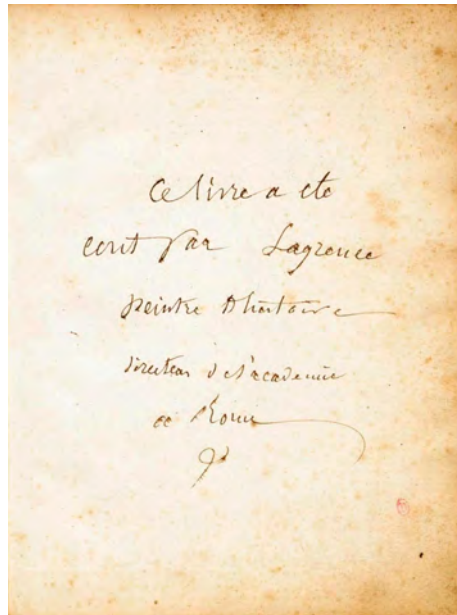 Ce livre a ete
ecrit par Lagrenee
peintre d'histoire
directeur de l'academie
de Rome